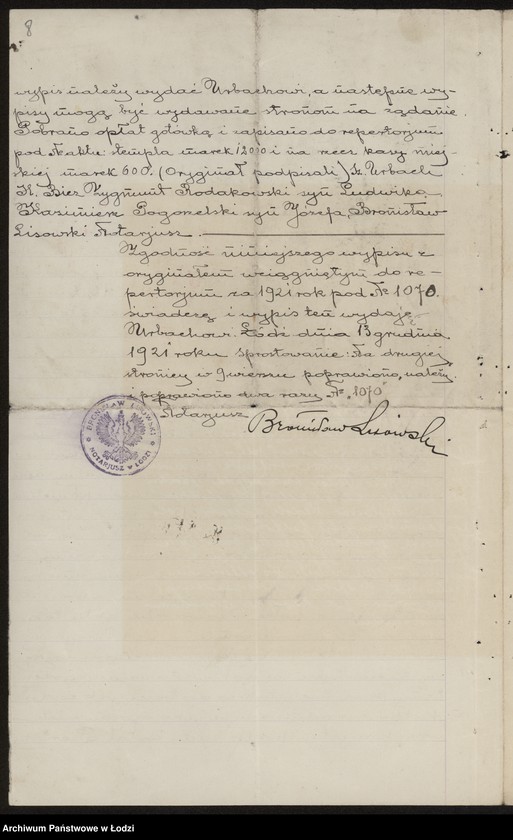 8
wypis należy wydać Urbachowi, a następne wy-
pisy mogą być wydawane stronom na żądanie.
Pobrano opłat gotówką i zapisano do repertorjum
pod № aktu: stempla marek 12000 i na rzecz kasy miej-
skiej marek 600. (Oryginał podpisali) Sz. Urbach
H. Bier Zygmunt Rodakowski syn Ludwika
Kazimierz Gogonelski syn Józefa, Bronisław
Lisowski Notarjusz.
Zgodność niniejszego wypisu z
oryginałem wciągniętym do re-
pertorjum za 1921 rok pod № 1070.
świadczę i wypis ten wydaję
Urbachowi. Łódź dnia 13 grudnia
1921 roku Sprostowanie: Na drugiej
stronicy w 9 wierszu poprawiono, należy
i poprawiono dwa razy № 1070
Notarjusz Bronisław Lisowski
BRONISŁAW LISOWSKI
NOTARJUSZ w ŁODZI
Archiwum Państwowe w Łodzi